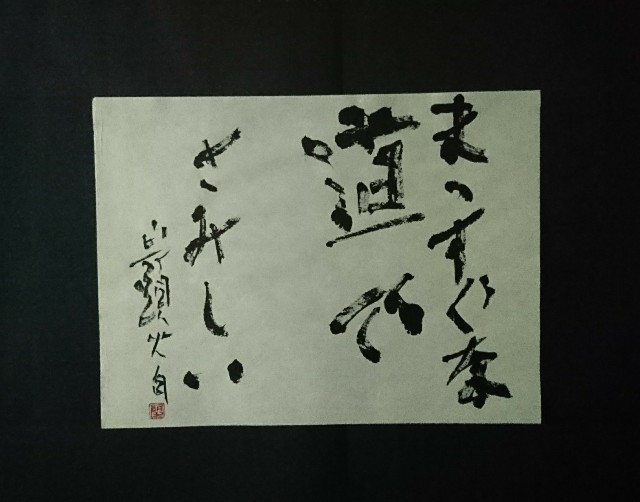 まっすぐな
道で
さみしい
山頭火